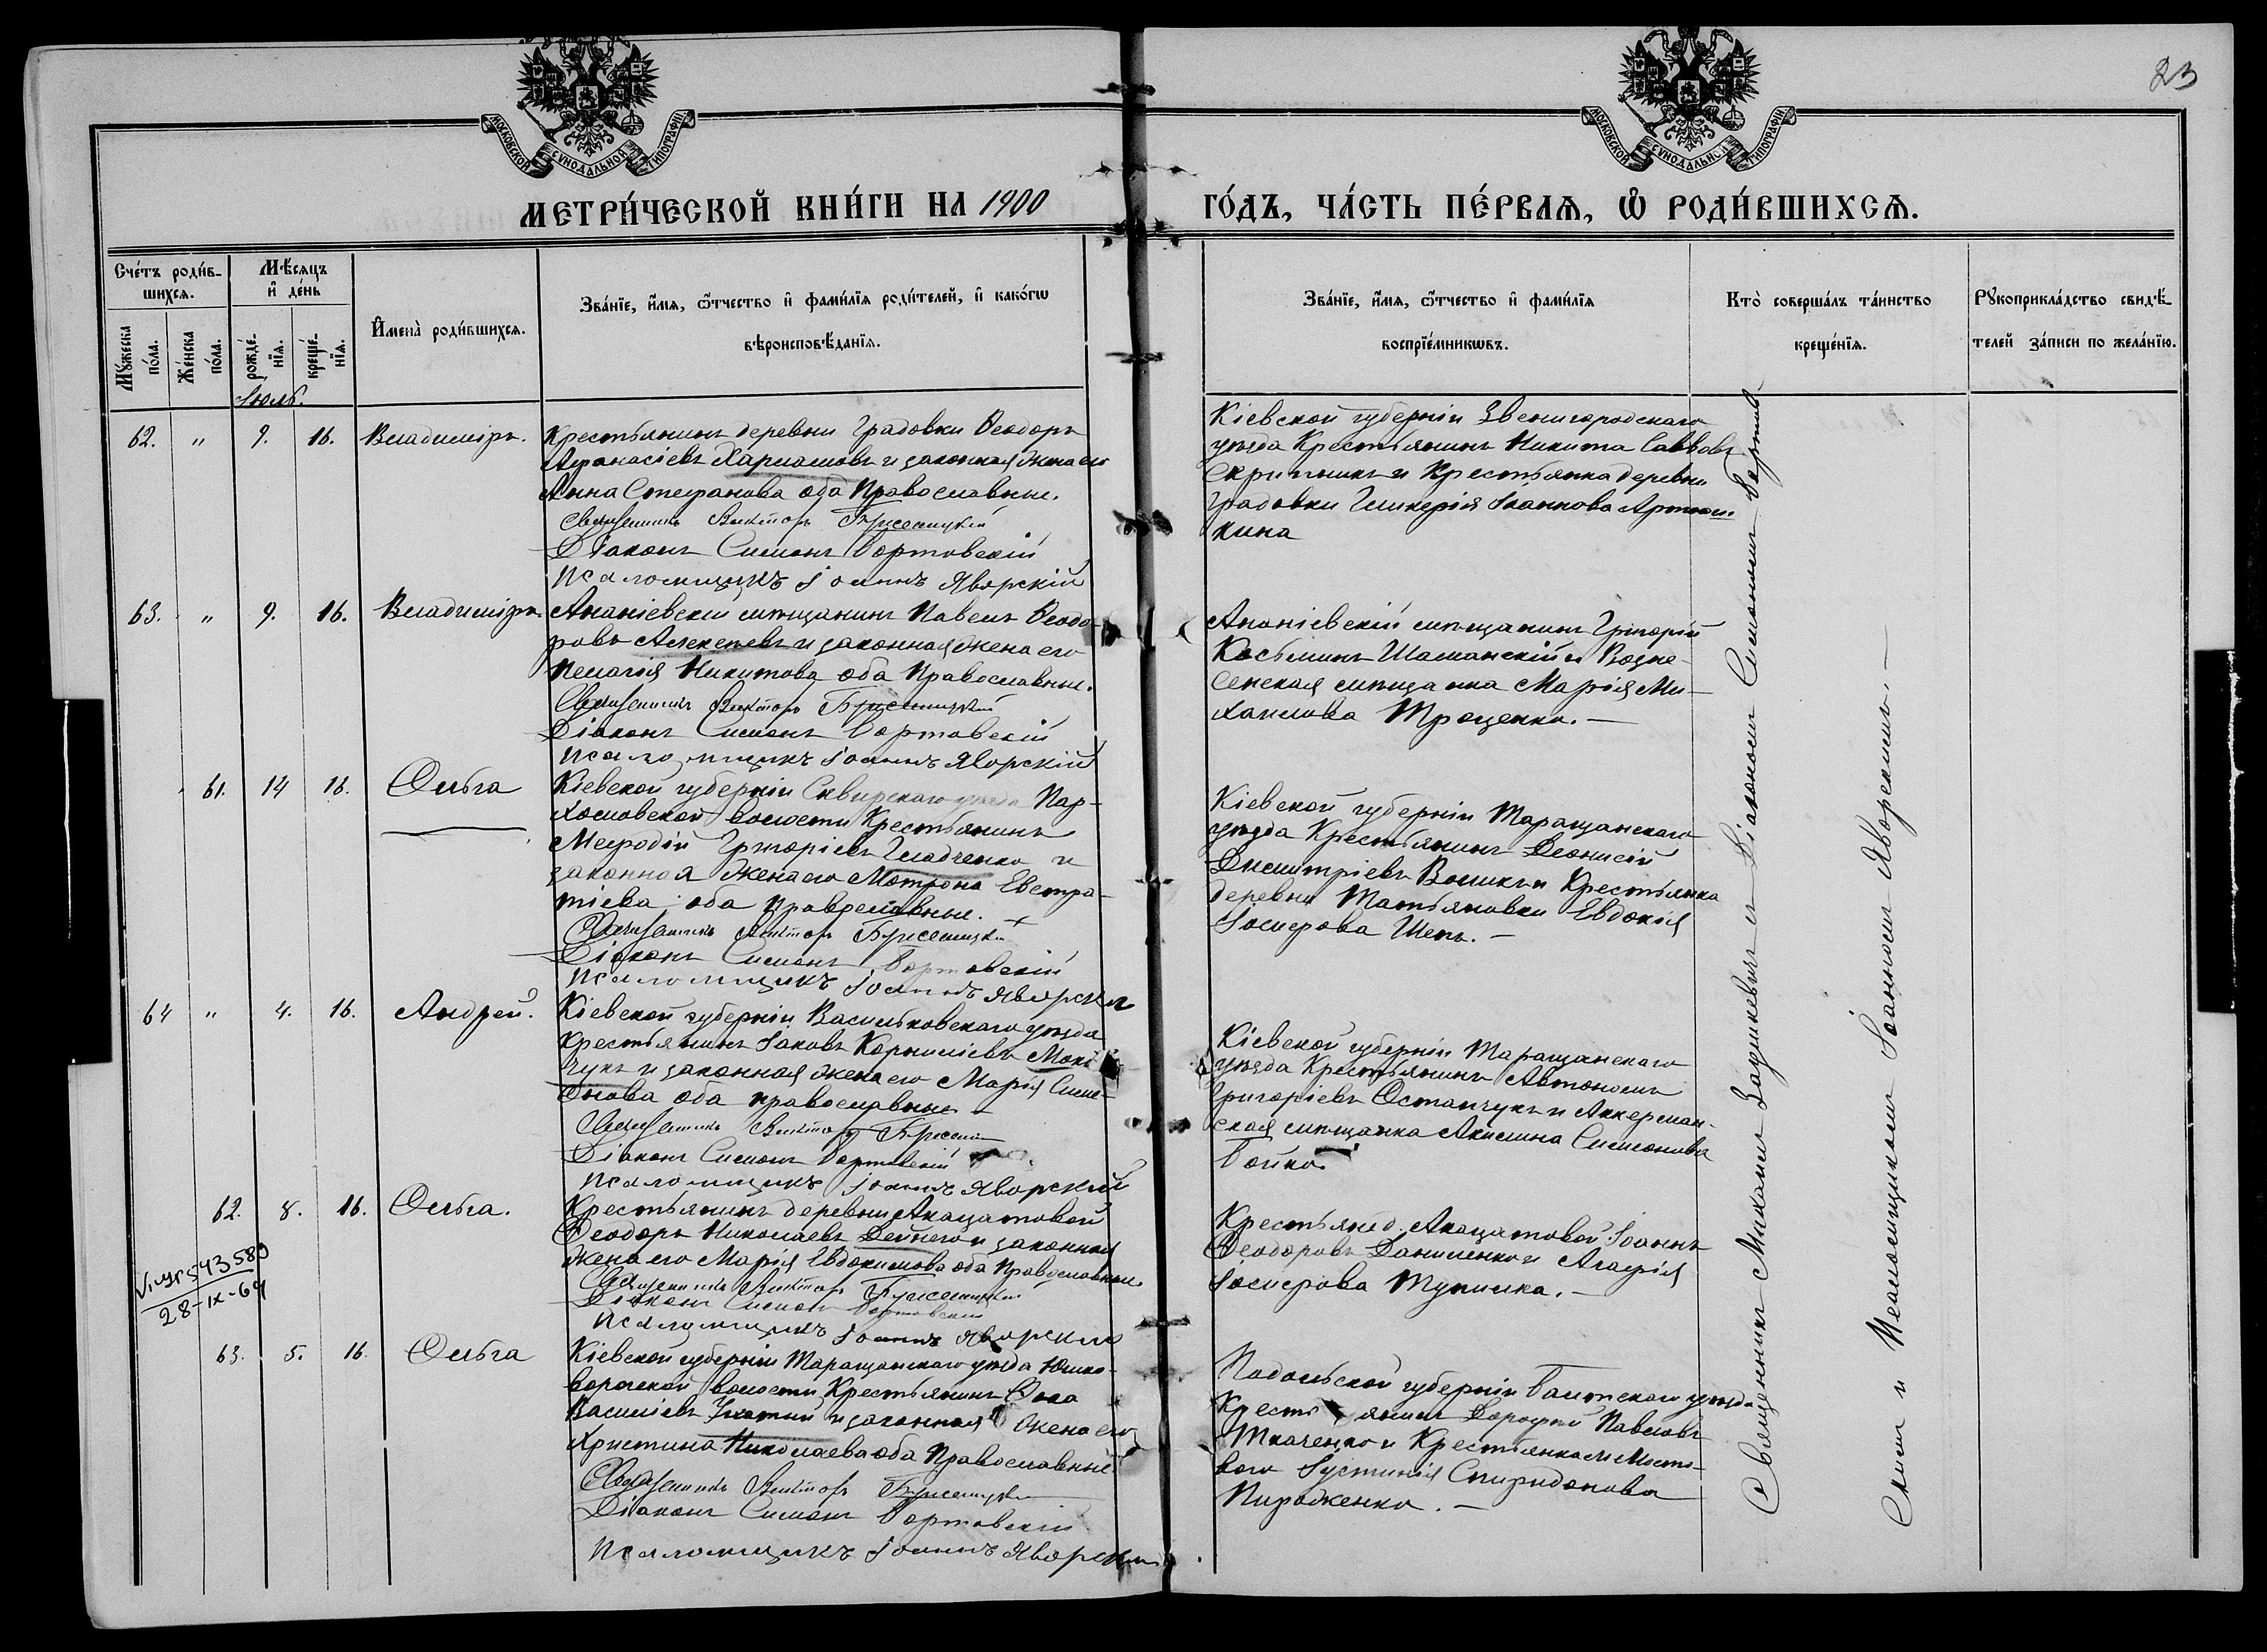 23
МОСКОВСКОЙ СУНОДАЛЬНОЙ ТИПОГРАФІИ
МОСКОВСКОЙ СУНОДАЛЬНОЙ ТИПОГРАФІИ
МЕТРИ́ЧЕСКОЙ КНИ́ГИ НА 1900
ГО́ДЪ, ЧА́СТЬ ПЕ́РВАЯ, Ѡ҆ РОДИ́ВШИХСЯ.
Сче́тъ роди́в-
шихся.
Мꙋ́жеска по́ла.
Же́нска по́ла.
Мѣ́сяцъ
и҆ де́нь
рожде́-нїя.
креще́-нїя.
И҆мена̀ роди́вшихся.
Зва́нїе, и҆́мя, ѻ҆́тчество и҆ фами́лїя роди́телей, и҆ како́гѡ
вѣроисповѣ́данїя.
Зва́нїе, и҆́мя, ѻ҆́тчество и҆ фами́лїя
воспрїе́мникѡвъ.
Кто̀ соверша́лъ та́инство
креще́нїя.
Рꙋкоприкла́дство свидѣ́-
телей за́писи по жела́нїю.
Іюль.
62. " 9. 16. Владиміръ.
Крестьянинъ деревни Градовки Ѳеодоръ
Аѳанасіевъ Харламовъ и законная жена его
Анна Стефанова оба Православные.
Священникъ Викторъ
Діаконъ Симонъ Бортовскій
Псаломщикъ Іоаннъ Яворскій
Кіевской губерніи Звенигородскаго
уѣзда Крестьянинъ Никита Саввовъ
Скрипникъ и Крестьянка деревни
Градовки Гликерія Іоаннова
кина
63. " 9. 16. Владиміръ.
Ананіевскій мѣщанинъ Павелъ Ѳеодо-
ровъ Алексѣевъ и законная жена его
Пелагія Никитова оба Православные.
Священникъ Викторъ
Діаконъ Симонъ Бортовскій
Псаломщикъ Іоаннъ Яворскій
Ананіевскій мѣщанинъ Григорій
Косьминъ Шаманскій и Возне-
сенская мѣщанка Марія Ми-
хаилова Троценко.—
61. 14 16. Ольга
Кіевской губерніи Сквирскаго уѣзда Пар-
хомовской волости Крестьянинъ
Меѳодій Григоріевъ Гладченко и
законная жена его Матрона Евстра-
тіева оба Православные.
Священникъ Викторъ
Діаконъ Симонъ Бортовскій
Псаломщикъ Іоаннъ Яворскій
Кіевской губерніи Таращанскаго
уѣзда Крестьянинъ Діонисій
Димитріевъ Воликъ и Крестьянка
деревни Татьяновки Евдокія
Іосифова Шепъ.—
64 " 4. 16. Андрей.
Кіевской губерніи Васильковскаго уѣзда
Крестьянинъ Іаковъ Корниліевъ
чукъ и законная жена его Марія Симе-
онова оба православные
Священникъ Викторъ
Діаконъ Симонъ Бортовскій
Псаломщикъ Іоаннъ Яворскій
Кіевской губерніи Таращанскаго
уѣзда Крестьянинъ Автономъ
Григоріевъ Остапчукъ и Аккерман-
ская мѣщанка Акилина Симеонова
Бойко.
62. 8. 16. Ольга.
Крестьянинъ деревни Акацатовой
Ѳеодоръ Николаевъ Дейнего и законная
жена его Марія Евдокимова оба Православные.
Священникъ Викторъ
Діаконъ Симонъ Бортовскій
Псаломщикъ Іоаннъ Яворскій
Крестьян. д. Акацатовой Іоаннъ
Ѳеодоровъ Даниленко и Агафія
Іосифова Тупичка.—
543589
28-IX-64
63. 5. 16. Ольга
Кіевской губерніи Таращанскаго уѣзда Юшко-
ворогской волости Крестьянинъ Ѳока
Василіевъ и законная жена его
Христина Николаева оба Православные
Священникъ Викторъ
Діаконъ Симонъ Бортовскій
Псаломщикъ Іоаннъ Яворскій
Подольской губерніи Балтскаго уѣзда
Крестьянинъ Дороѳей Павловъ
Ткаченко и Крестьянка м. Мосто-
вого Іустинія Спиридонова
Пироженко.—
Священникъ Михаилъ Задушкевичъ и Діакономъ Симономъ Бортов-
скимъ и Псаломщикомъ Іоанномъ Яворскимъ.—